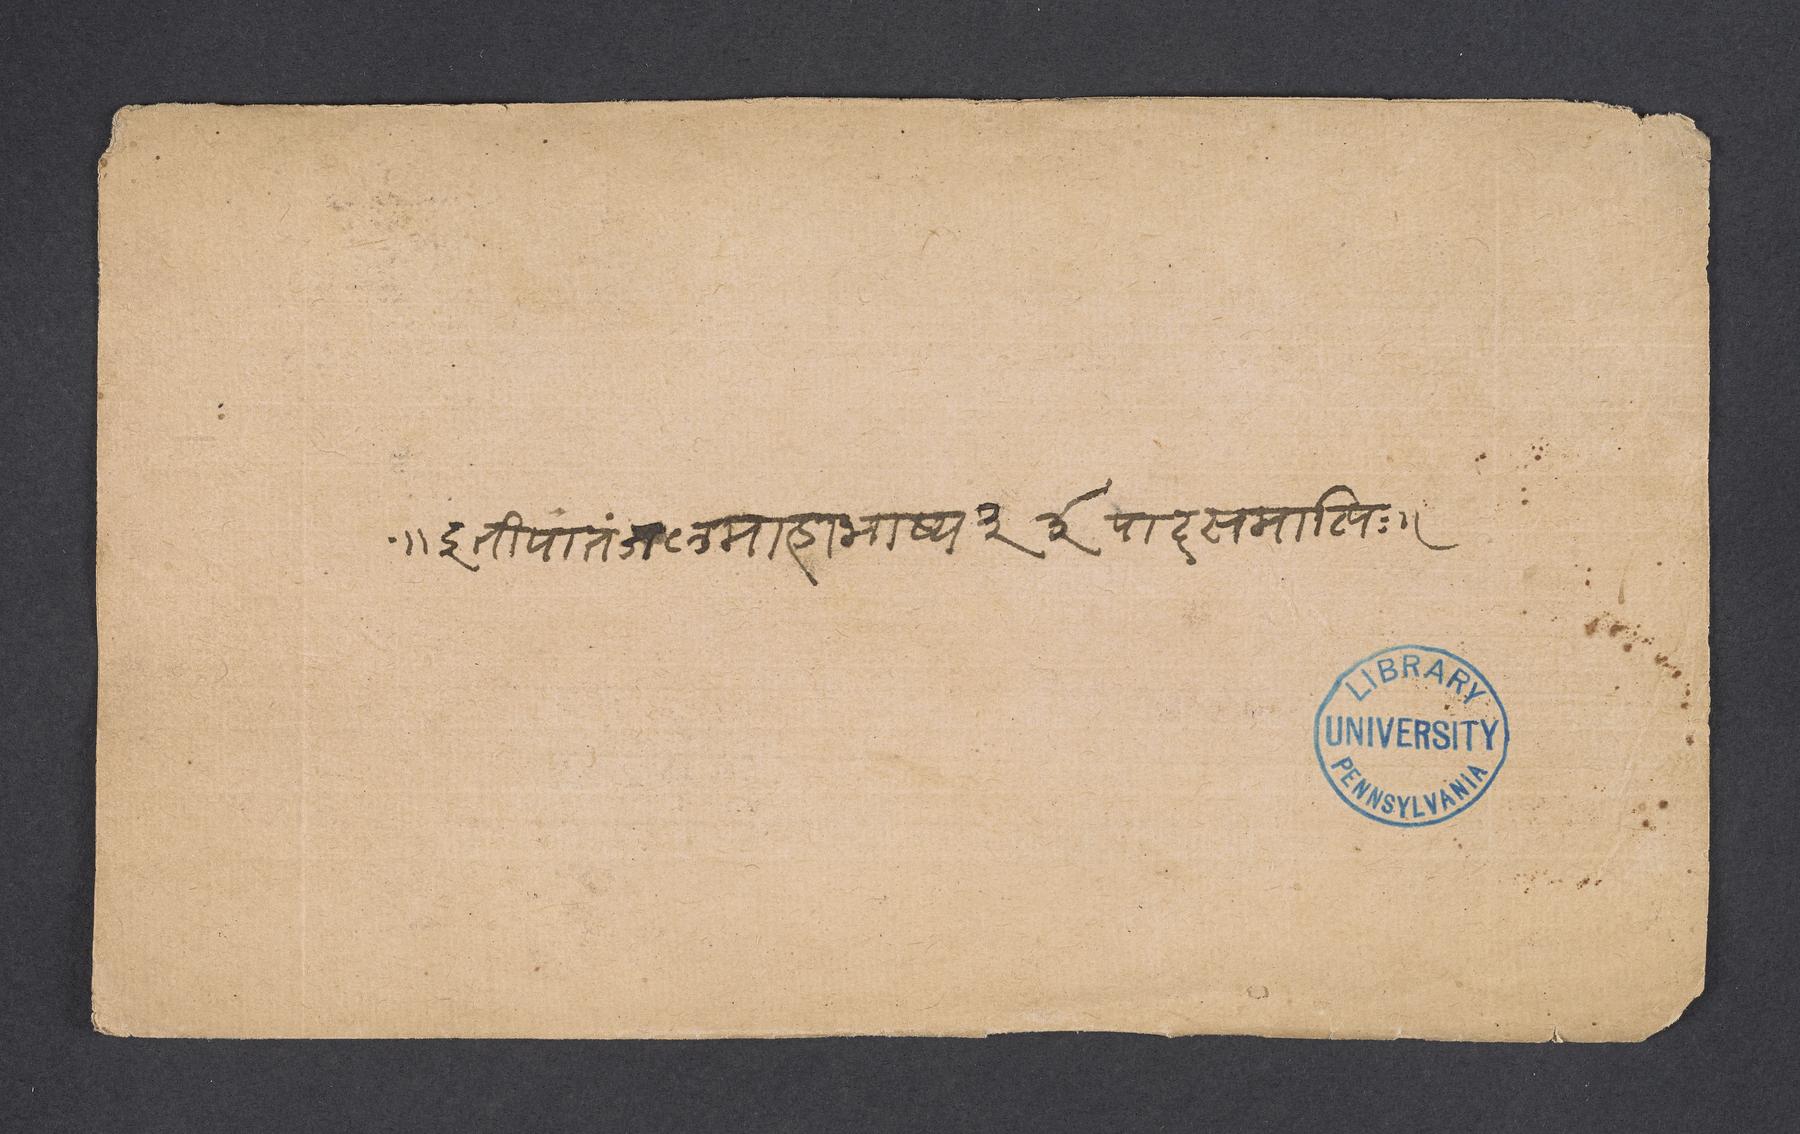 ॥इतीपातंजलमाहाभाष्य ३ र्इ पादसमाप्तिः॥
LIBRARY
UNIVERSITY
PENNSYLVANIA